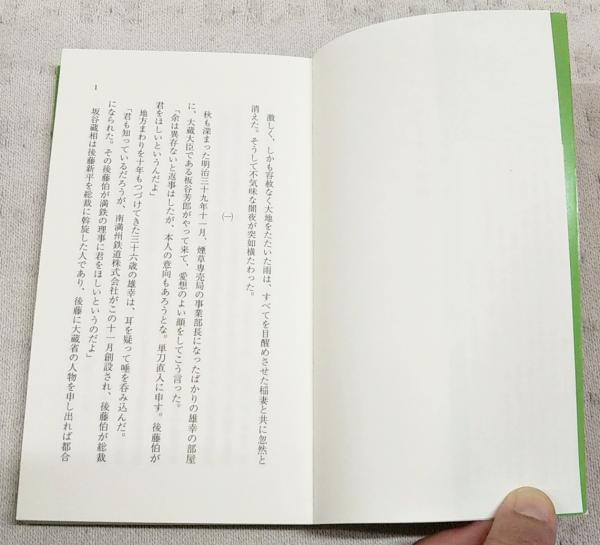 激しく、しかも容赦なく大地をたたいた雨は、すべてを目醒めさせた稲妻と共に忽然と
消えた。そうして不気味な闇夜が突如横たわった。
(一)
秋も深まった明治三十九年十一月、煙草専売局の事業部長になったばかりの雄幸の部屋
に、大蔵大臣である板谷芳郎がやって来て、愛想のよい顔をしてこう言った。
「余は異存ないと返事はしたが、本人の意向もあろうとな。単刀直入に申す。後藤伯が
君をほしいというんだよ」
地方まわりを十年もつづけてきた三十六歳の雄幸は、耳を疑って唾を呑み込んだ。
「君も知っているだろうが、南満州鉄道株式会社がこの十一月創設され、後藤伯が総裁
になられた。その後藤伯が満鉄の理事に君をほしいというのだよ」
坂谷蔵相は後藤新平を総裁に斡旋した人であり、後藤に大蔵省の人物を申し出れば都合
1